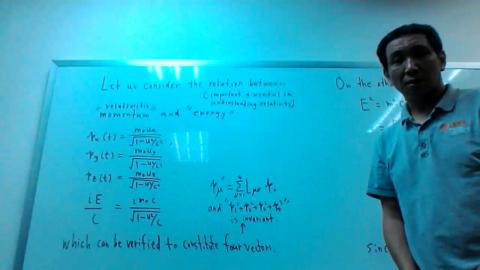 Let us consider the relation between
(important & essential in
understanding relativity)
"relativistic
momentum" and "energy"
pₓ(t) = m₀uₓ / √(1-u²/c²),
p_y(t) = m₀u_y / √(1-u²/c²)
p_z(t) = m₀u_z / √(1-u²/c²)
iE / c = i m₀ c / √(1-u²/c²)
p_μ' = Σ_{ν=1}^{4} L_{μν} p_ν
and "p₁²+p₂²+p₃²+p₄²"
is invariant
which can be verified to constitute four vectors.
On the
E² =
=